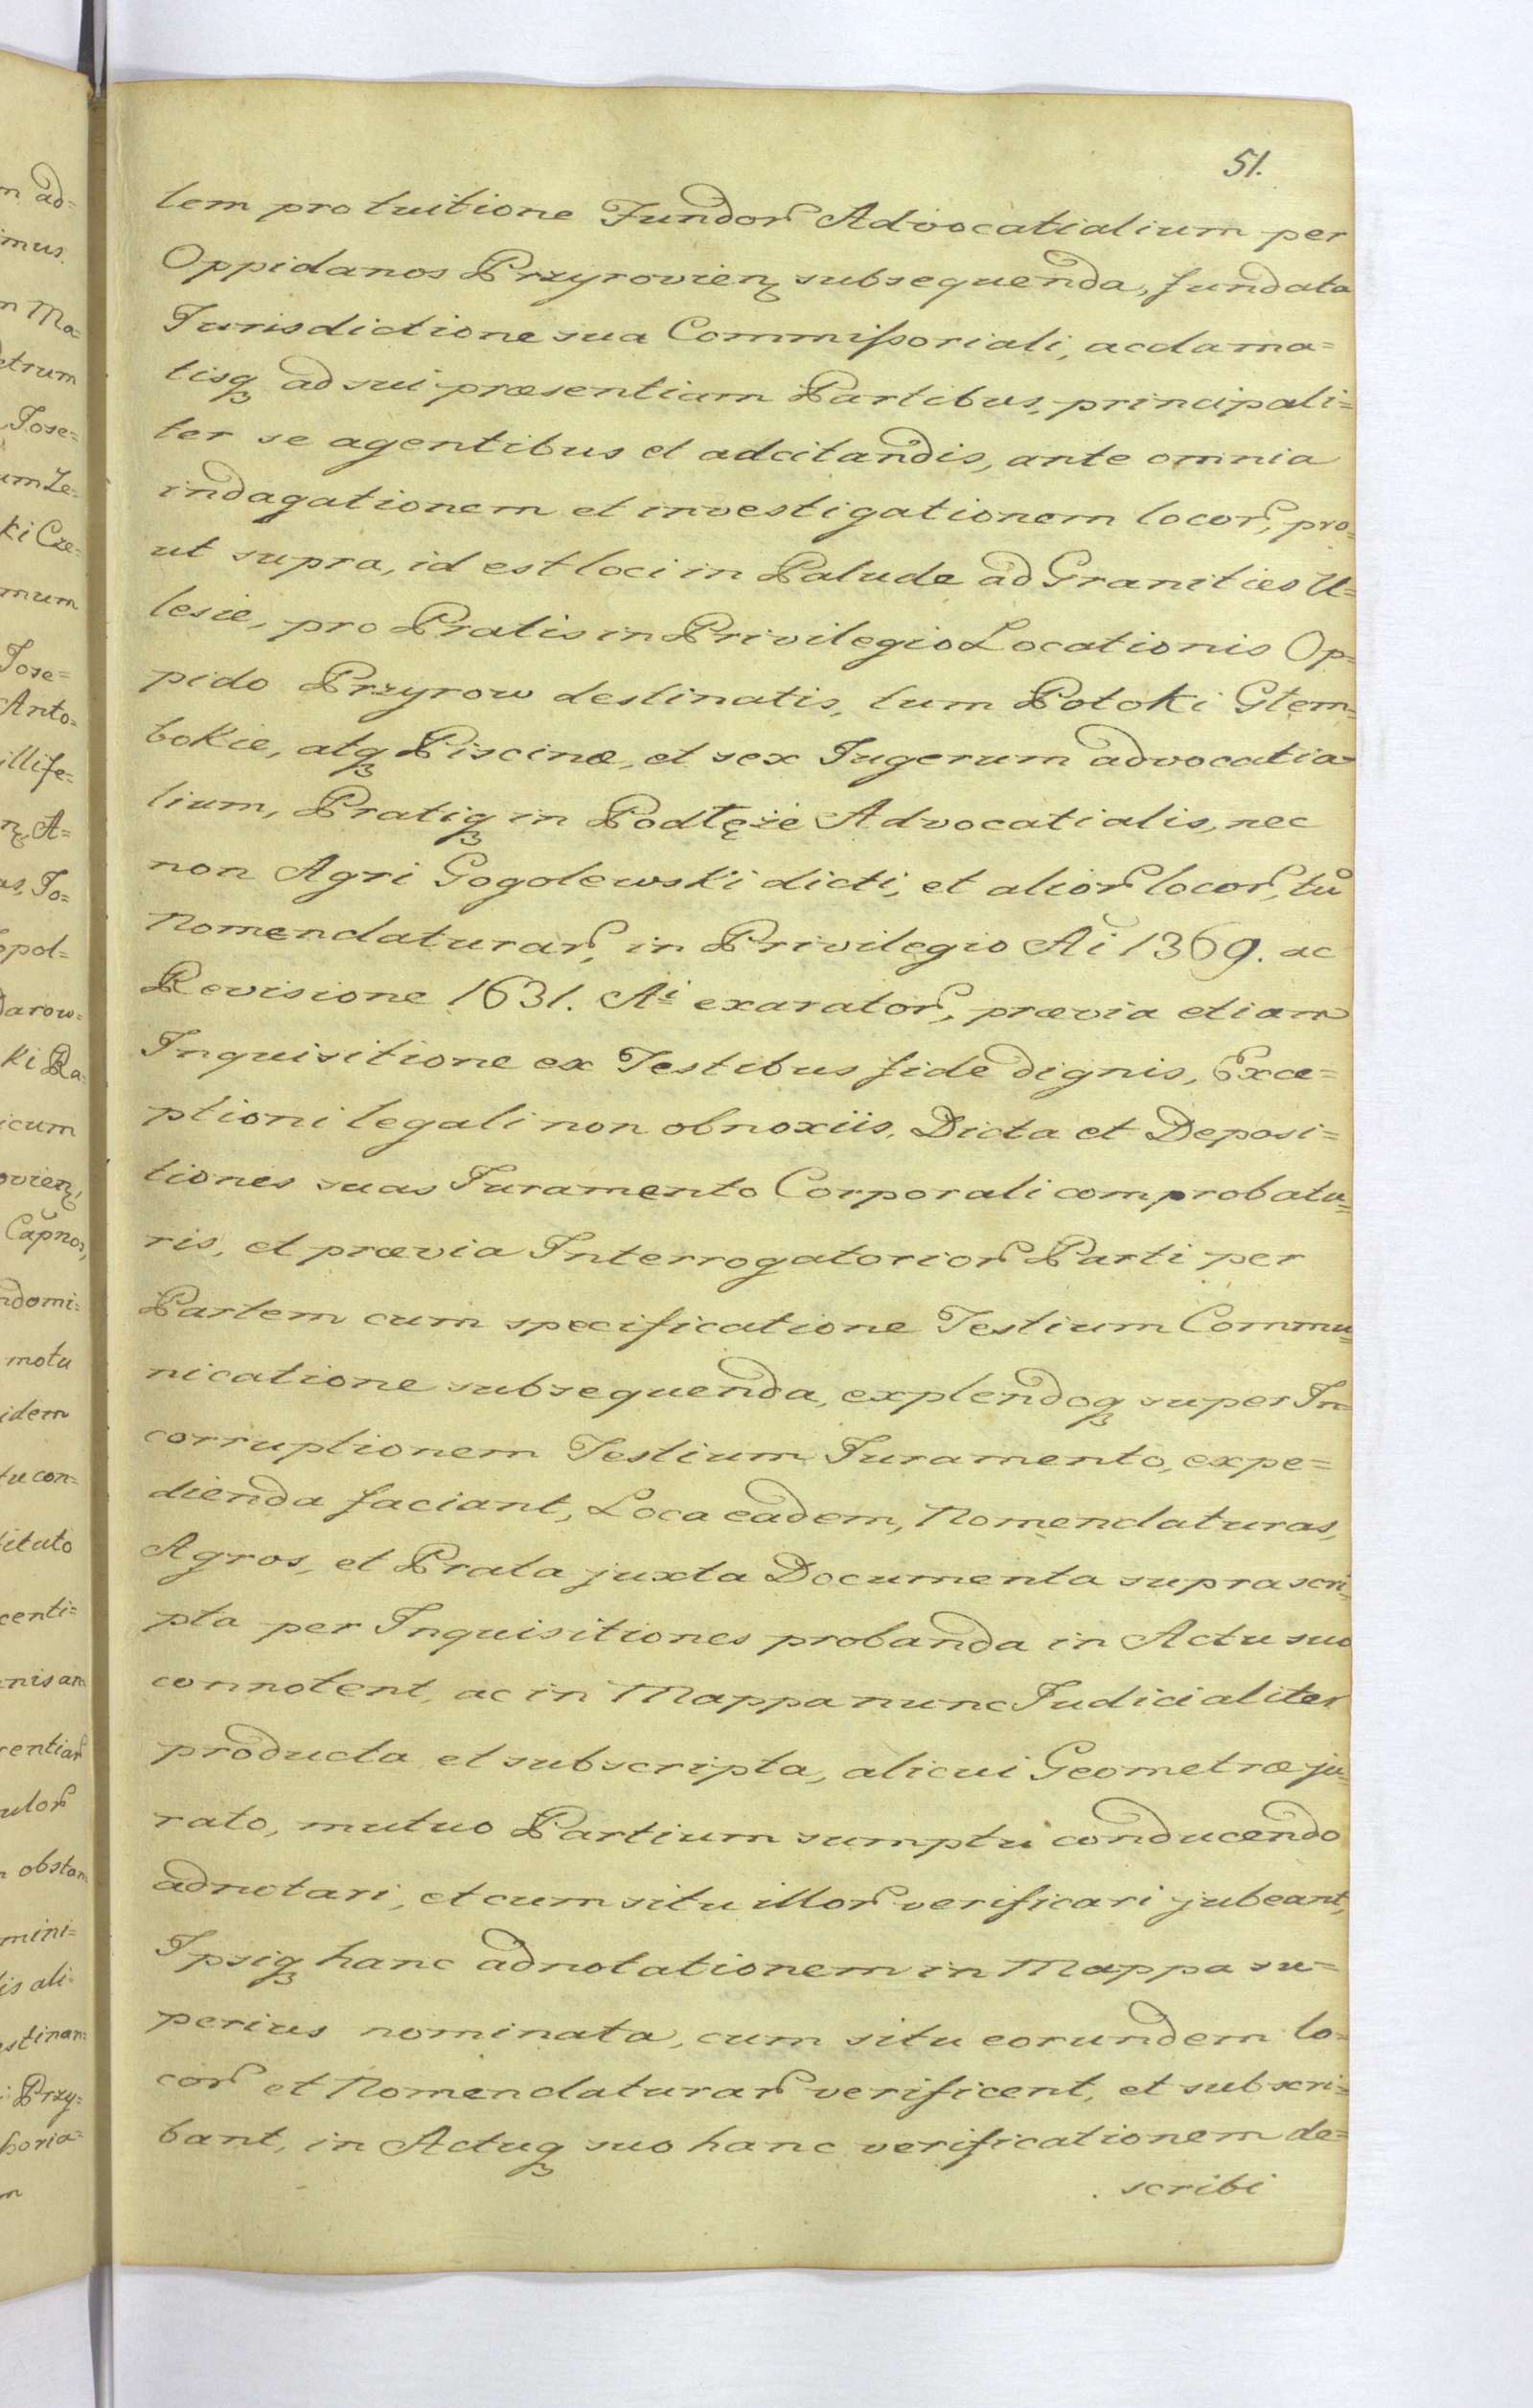 51.
tem pro tuitione Fundoꝝ Advocatialium per
Oppidanos Przyrovienꝫ subsequenda, fundata
Jurisdictione sua Commissoriali, acclama=
tisqꝫ ad sui præsentiam Partibus, principali=
ter se agentibus et adcitandis, ante omnia
indagationem et investigationem locoꝝ, pro=
ut supra, id est loci in Palude ad Granities U=
lesie, pro Pratis in Privilegio Locationis Op=
pido Przyrow destinatis, tum Potoki Głem=
bokie, atqꝫ Piscinæ, et sex Jugerum advocatia=
lium, Pratiqꝫ in Podłęże Advocatialis, nec
non Agri Gogolewski dicti, et alioꝝ locoꝝ, tū
Nomenclaturaꝝ, in Privilegio Aī 1369. ac
Revisione 1631. Aⁱ exaratoꝝ, prævia etiam
Inquisitione ex Testibus fide dignis, Exce=
ptioni legali non obnoxiis, Dicta et Deposi=
tiones suas Juramento Corporali comprobatu=
ris, et prævia Interrogatorioꝝ Parti per
Partem cum specificatione Testium Commu=
nicatione subsequenda, explendoqꝫ super In=
corruptionem Testium Juramento, expe=
dienda faciant, Loca eadem, Nomenclaturas,
Agros, et Prata juxta Documenta suprascri=
pta per Inquisitiones probanda in Actu suo
connotent, ac in Mappa nunc Judicialiter
producta et subscripta, alicui Geometræ ju=
rato, mutuo Partium sumptu conducendo
adnotari, et cum situ illoꝝ verificari jubeant,
Ipsiqꝫ hanc adnotationem in Mappa su=
perius nominata, cum situ eorundem lo=
coꝝ et Nomenclaturaꝝ verificent, et subscri=
bant, in Actuqꝫ suo hanc verificationem de=
scribi